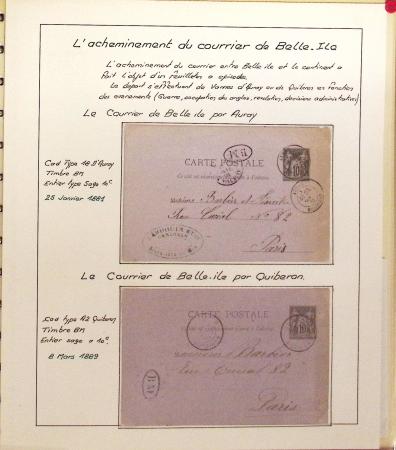 L'acheminement du courrier de Belle.Ile
L'acheminement du courrier entre Belle ile et le continent a
fait l'objet d'un feuilleton a episodes.
Le depart s'effectuait de Vannes d'Auray ou de Quiberon en fonction
des evenements (Guerre, occupation des anglais, revolution, decisions administratives)
Le Courrier de Belle ile par Auray
Cad Type 18 d'Auray
Timbre BM
Entier type Sage 10c
25 Janvier 1881
BM
CARTE POSTALE
Ce côté est exclusivement réservé à l'adresse.
N° 82
Paris
Le Courrier de Belle.ile par Quiberon.
Cad type A2 Quiberon
Timbre BM
Entier sage a 10c
8 Mars 1889
CARTE POSTALE
Ce côté est exclusivement réservé à l'adresse.
82
Paris